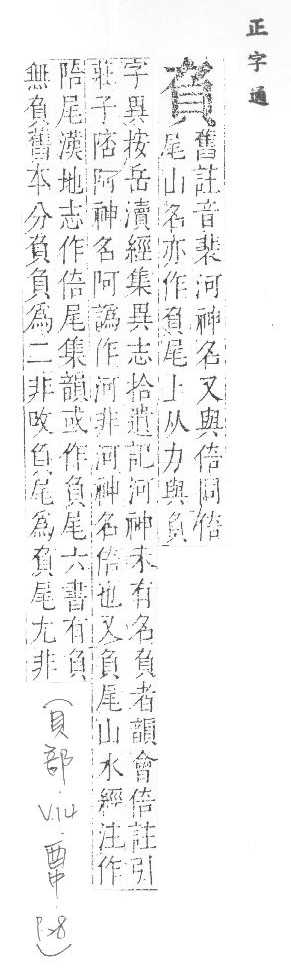 正字通
舊註音裴河神名又與倍同倍
尾山名亦作負尾上从力與負
字異按岳瀆經集異志拾遺記河神未有名負者韻會倍註引
莊子陪阿神名阿譌作河非河神名倍也又負尾山水經注作
陪尾漢地志作倍尾集韻或作負尾六書有負
無負舊本分負負爲二非改負尾爲負尾尤非
(貝部.V.14.酉中 P.28)